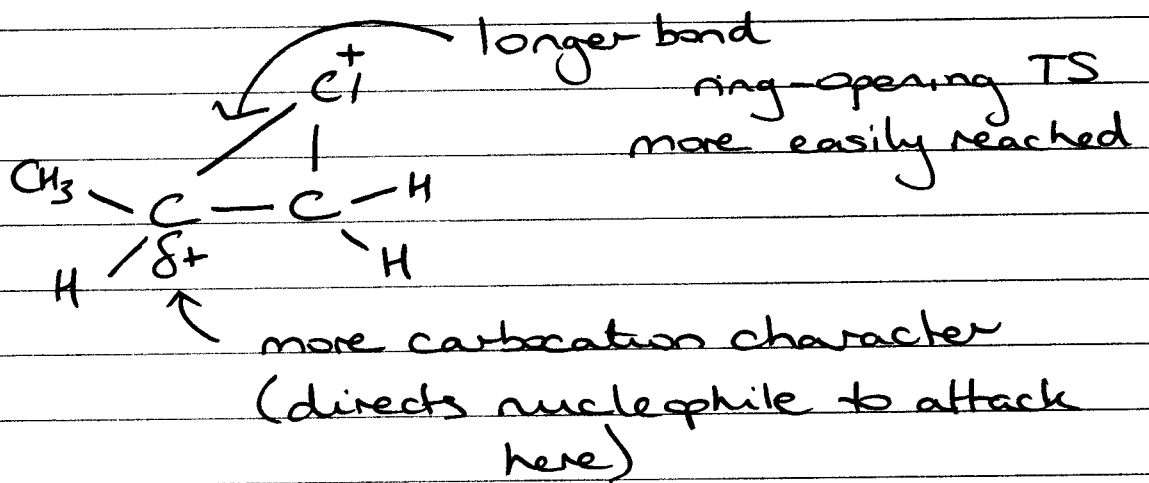 longer bond
ring-opening TS
more easily reached
+
Cl
CH3 C C H
H δ+ H
more carbocation character
(directs nucleophile to attack
here)